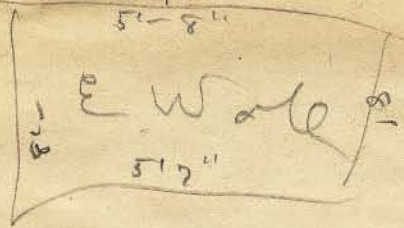 5'-8"
E Wall
8'
8'
5'7"